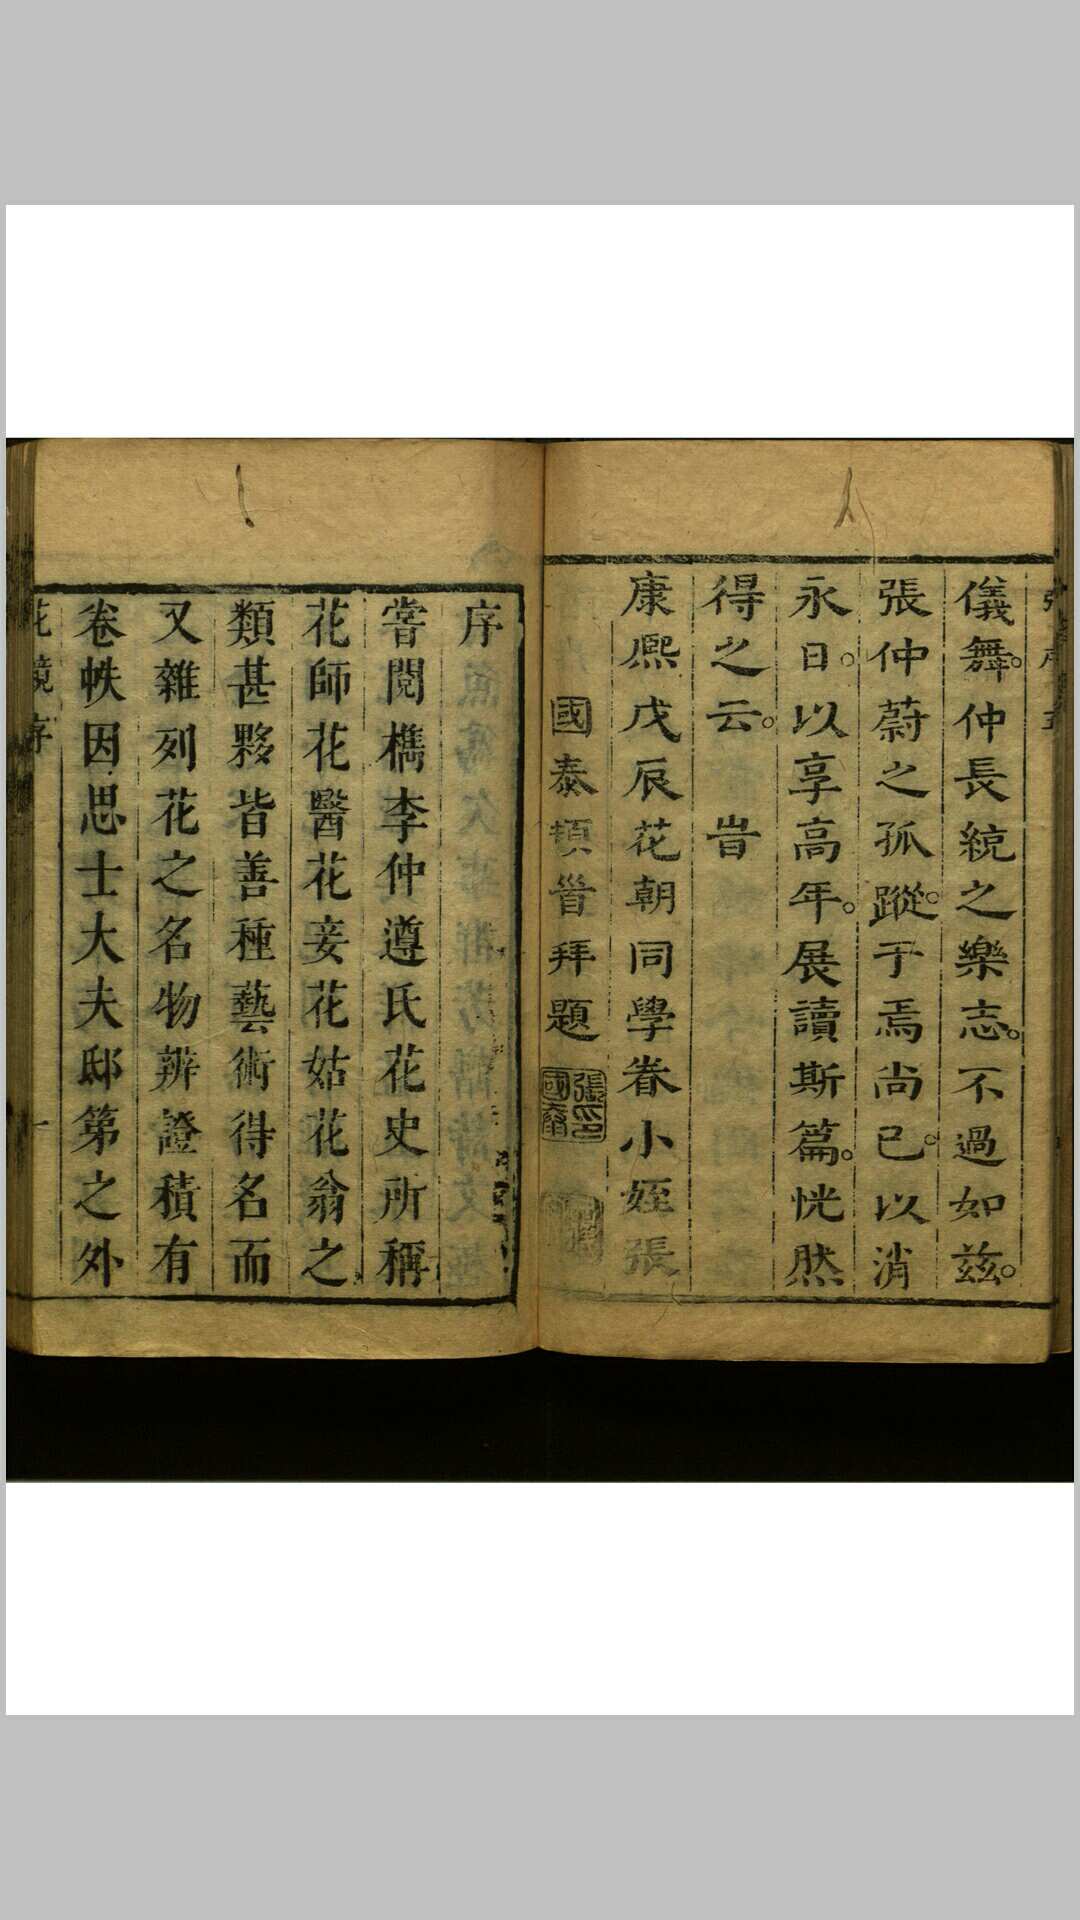 儀舞。仲長統之樂志。不過如茲。
張仲蔚之孤蹤。于焉尚已。以消
永日。以享高年。展讀斯篇。恍然
得之云。旹
康熙戊辰花朝同學眷小姪張
國泰頓首拜題
序
嘗閱檇李仲遵氏花史所稱
花師花醫花妾花姑花翁之
類甚夥皆善種藝術得名而
又雜列花之名物辨證積有
卷帙因思士大夫邸第之外
花鏡序 一